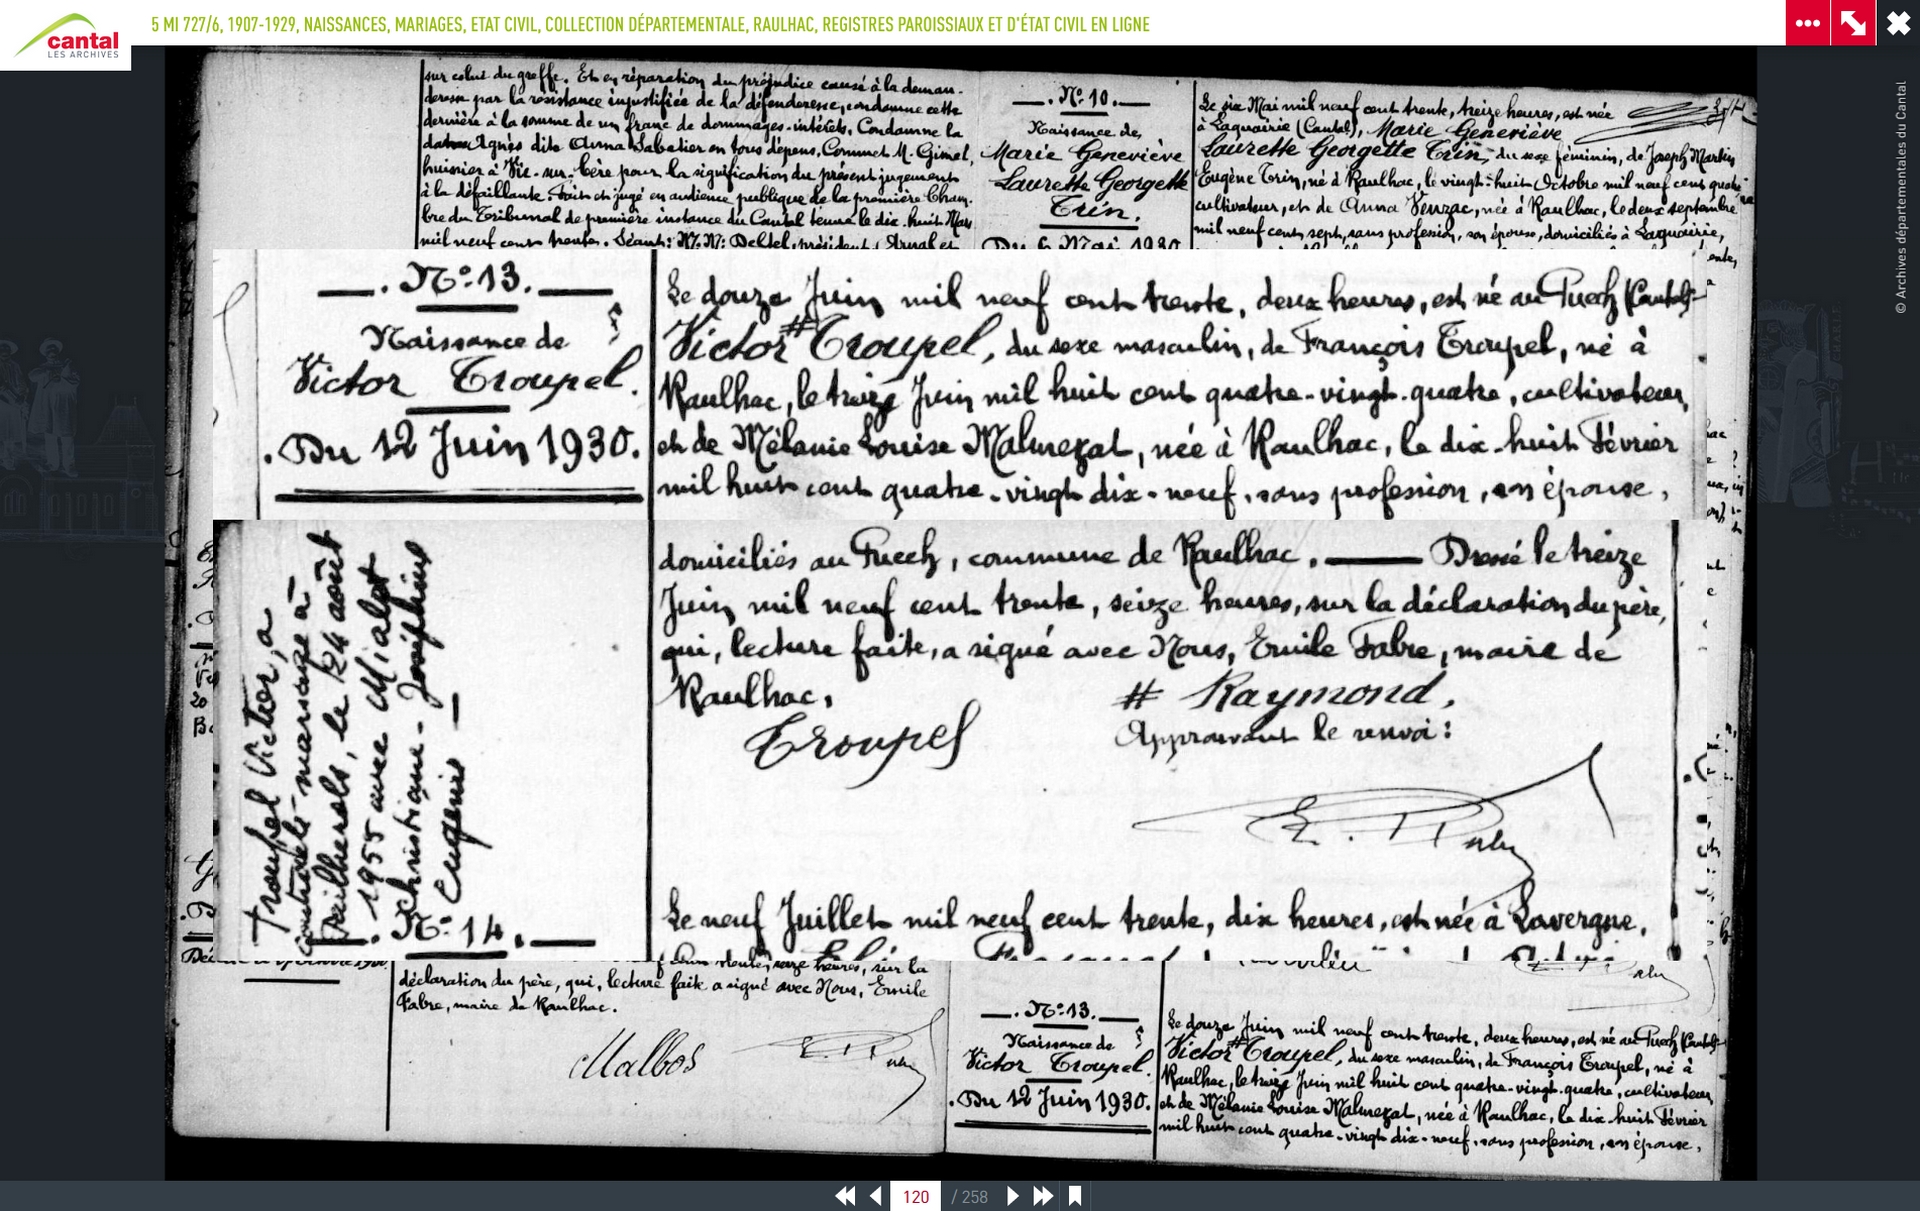 cantal
LES ARCHIVES
5 MI 727/6, 1907-1929, NAISSANCES, MARIAGES, ETAT CIVIL, COLLECTION DÉPARTEMENTALE, RAULHAC, REGISTRES PAROISSIAUX ET D'ÉTAT CIVIL EN LIGNE
© Archives départementales du Cantal
sur celui du greffe. Et en réparation du préjudice causé à la deman-
deresse par la résistance injustifiée de la défenderesse, condamne cette
dernière à la somme de un franc de dommages-intérêts. Condamne la
Agnès dite Anna Sabatier en tous dépens. Commet M. Gimel,
huissier à Vic-sur-Cère pour la signification du présent jugement
à la défaillante. Fait et jugé en audience publique de la première Cham-
bre du Tribunal de première instance du Cantal tenue le dix-huit Mars
mil neuf cent trente. Séant: M.M: Deltel, président,
N° 10.
Naissance de
Marie Geneviève
Laurette Georgette
Trin.
Du 6 Mai 1930
Le six Mai mil neuf cent trente, treize heures, est née
à Laquairie (Cantal), Marie Geneviève
Laurette Georgette Trin, du sexe féminin, de Joseph Martin
Eugène Trin, né à Raulhac, le vingt-huit Octobre mil neuf cent quatre
cultivateur, et de Anna Venzac, née à Raulhac, le deux septembre
mil neuf cent sept, sans profession, son épouse, domiciliés à Laquairie,
N° 13.
Naissance de
Victor Troupel.
Du 12 Juin 1930.
Le douze Juin mil neuf cent trente, deux heures, est né au Puech (Cantal)-
Victor # Troupel, du sexe masculin, de François Troupel, né à
Raulhac, le treize Juin mil huit cent quatre-vingt-quatre, cultivateur,
et de Mélanie Louise Malmezat, née à Raulhac, le dix-huit Février
mil huit cent quatre-vingt dix-neuf, sans profession, son épouse,
domiciliés au Puech, commune de Raulhac. Dressé le treize
Juin mil neuf cent trente, seize heures, sur la déclaration du père,
qui, lecture faite, a signé avec Nous, Emile Fabre, maire de
Raulhac.
# Raymond.
Approuvant le renvoi:
Troupel
E. Fabre
Troupel Victor, a
contracté mariage à
Pailherols, le 24 août
1955 avec Mialot
Christiane-Joséphine
Eugénie
N° 14.
Le neuf Juillet mil neuf cent trente, dix heures, est née à Lavergne,
cent trente, seize heures, sur la
déclaration du père, qui, lecture faite a signé avec Nous, Emile
Fabre, maire de Raulhac.
Malbos
E. Fabre
N° 13.
Naissance de
Victor Troupel.
Du 12 Juin 1930.
Le douze Juin mil neuf cent trente, deux heures, est né au Puech (Cantal)-
Victor # Troupel, du sexe masculin, de François Troupel, né à
Raulhac, le treize Juin mil huit cent quatre-vingt-quatre, cultivateur,
et de Mélanie Louise Malmezat, née à Raulhac, le dix-huit Février
mil huit cent quatre-vingt dix-neuf, sans profession, son épouse,
120 / 258